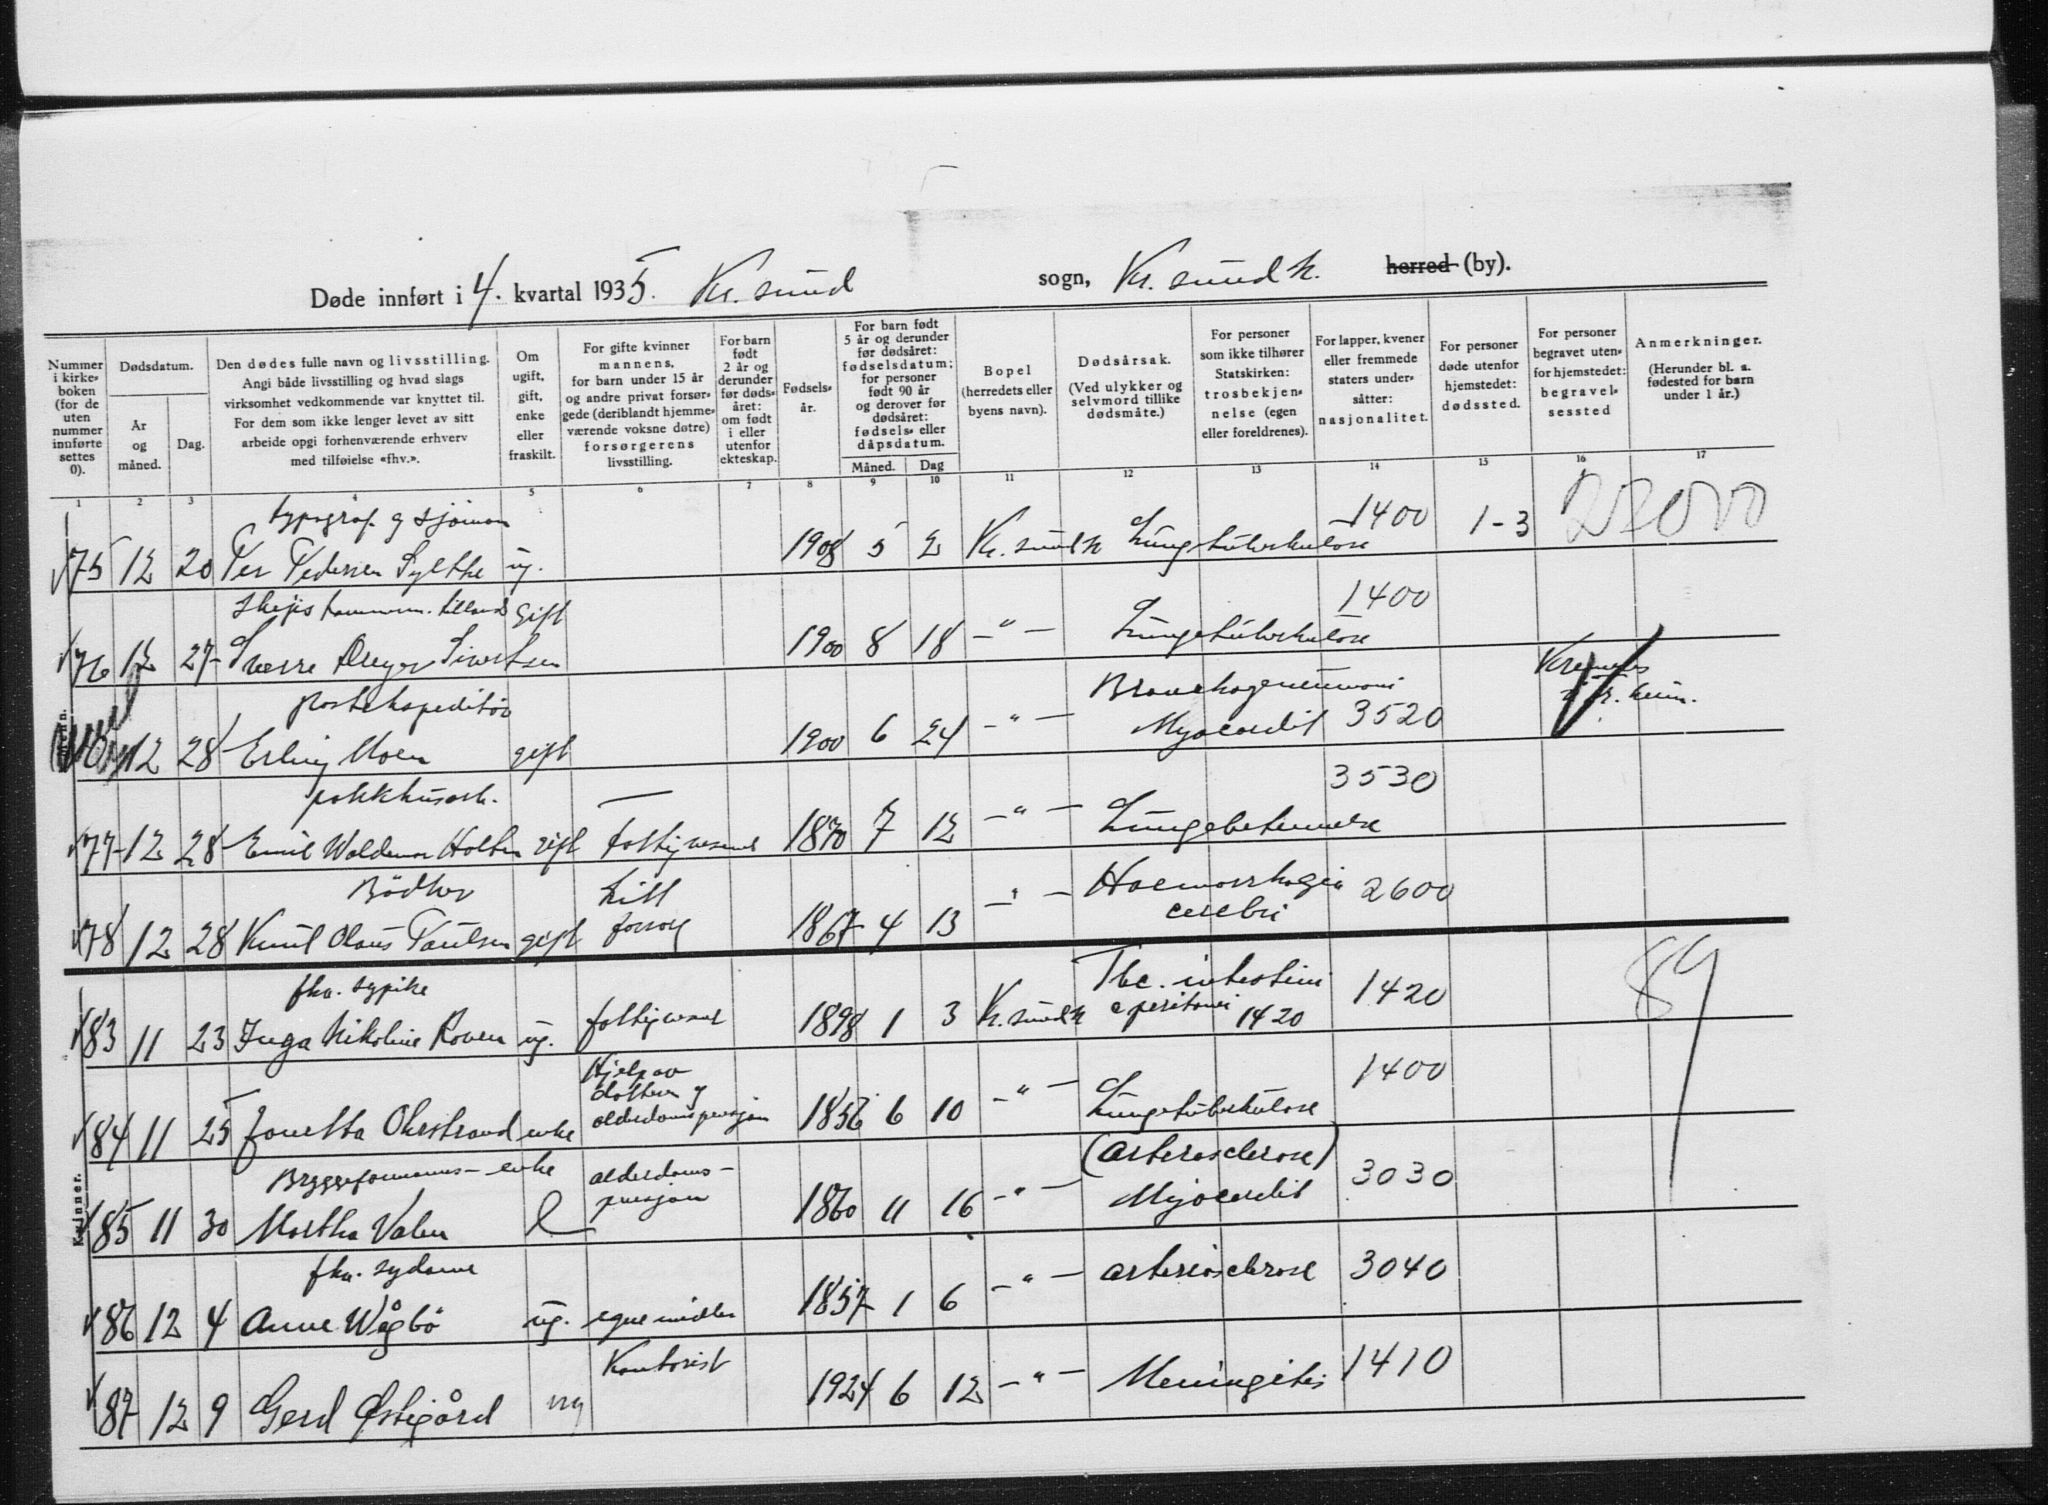 Døde innført i 4. kvartal 1935. Kr.sund sogn, Kr.sund N. herred (by).
Nummer i kirke-boken (for de uten nummer innførte settes 0).
Dødsdatum.
År og måned.
Dag.
Den dødes fulle navn og livsstilling.
Angi både livsstilling og hvad slags
virksomhet vedkommende var knyttet til.
For dem som ikke lenger levet av sitt
arbeide opgi forhenværende erhverv
med tilføielse «fhv.».
Om ugift, gift, enke eller fraskilt.
For gifte kvinner mannens, for barn under 15 år og andre privat forsørgede (deriblandt hjemmeværende voksne døtre) forsørgerens livsstilling.
For barn født 2 år og derunder før dødsåret: om født i eller utenfor ekteskap.
Fødselsår.
For barn født 5 år og derunder før dødsåret: fødselsdatum; for personer født 90 år og derover før dødsåret: fødsels- eller dåpsdatum.
Måned. Dag
Bopel (herredets eller byens navn).
Dødsårsak. (Ved ulykker og selvmord tillike dødsmåte.)
For personer som ikke tilhører Statskirken: trosbekjennelse (egen eller foreldrenes).
For lapper, kvener eller fremmede staters undersåtter: nasjonalitet.
For personer døde utenfor hjemstedet: dødssted.
For personer begravet utenfor hjemstedet: begravelsessted
Anmerkninger. (Herunder bl. a. fødested for barn under 1 år.)
1 2 3 4 5 6 7 8 9 10 11 12 13 14 15 16 17
Menn.
typograf og sjømann
75 12 20 Per Pedersen Sylthe ug. 1908 5 2 Kr.sund N Lungetuberkulose 1400 1-3
gift 1400
76 12 27 Sverre Dreyer Sivertsen 1900 8 18 -"- Lungetuberkulose
postekspeditør Bronchopneumoni
12 28 Erling Moen gift 1900 6 24 -"- Myocardit 3520
pakkhusarb. — 3530
77 12 28 Emil Waldemar Holten gift fattigvesenet 1870 7 12 -"- Lungebetennelse
Bödker Haemorrhagia 2600
78 12 28 Knut Olaus Paulsen gift 1867 4 13 -"- cerebri
Kvinner.
fhv. sypike Tbc. intestini 1420
83 11 23 Inga Nikoline Roven ug. fattigvesenet 1898 1 3 Kr.sund N e peritonei 1420
89
Hjelp av datteren og alderdomspensjon 1400
84 11 25 Jonetta Ohrstrand enke 1856 6 10 -"- Lungetuberkulose
Bryggeformanns-enke alderdoms-pensjon (arteriosclerose) 3030
85 11 30 Martha Valen e 1860 11 16 -"- Myocardit
fhv. sydame
86 12 4 Anne Wågbö ug. egne midler 1857 1 6 -"- arteriosclerose 3040
Kontorist
87 12 9 Gerd Østigård ug 1924 6 12 -"- Meningitis 1410